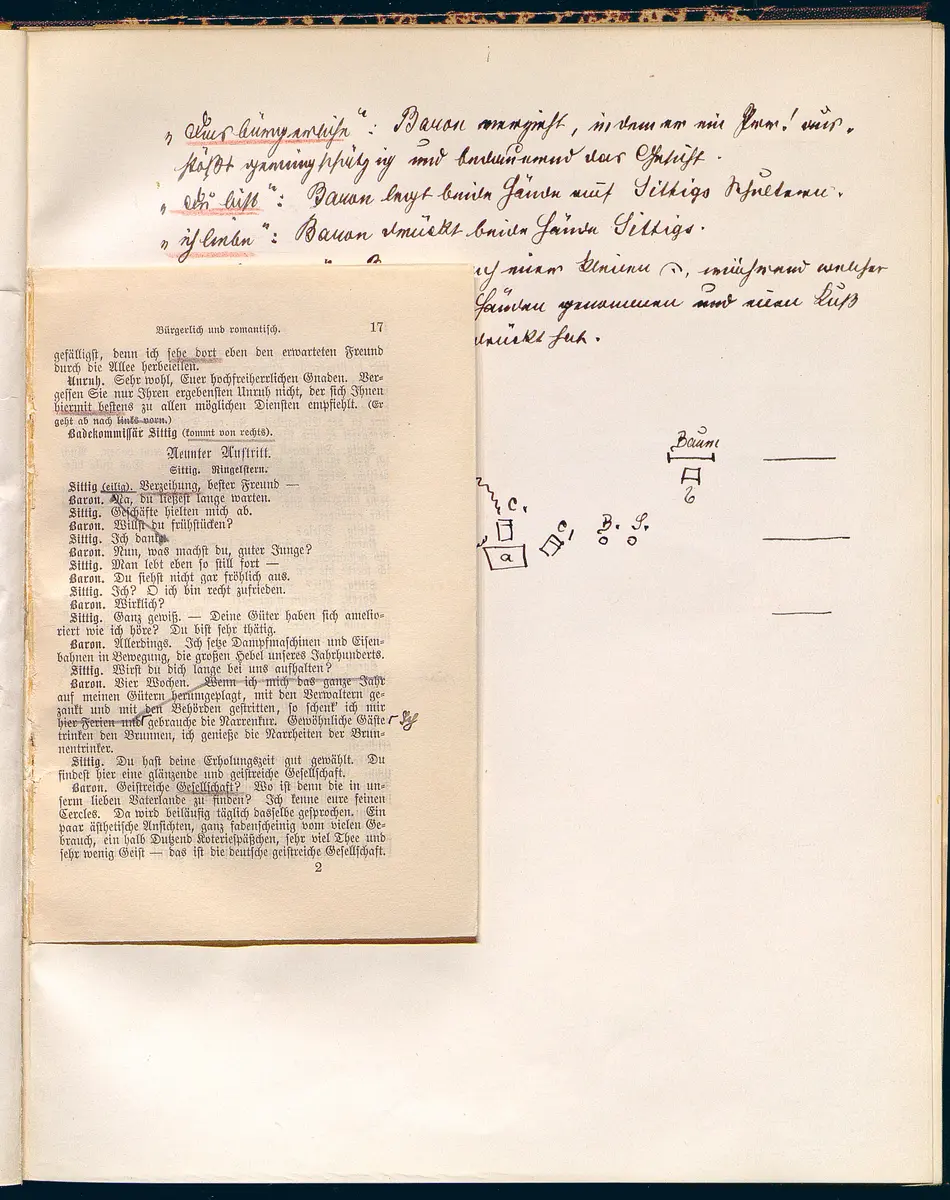 „Das bürgerliche“: Baron verzieht, indem er ein Prr! aus-
stößt geringschätzig und bedauernd das Gesicht.
„Du bist“: Baron legt beide Hände auf Sittigs Schultern.
„ich liebe“: Baron drückt beide Hände Sittigs.
nach einer kleinen , während welcher
Händen genommen und einen Kuß
drückt hat.
Bürgerlich und romantisch. 17
gefälligst, denn ich sehe dort eben den erwarteten Freund
durch die Allee herbeieilen.
Unruh. Sehr wohl, Euer hochfreiherrlichen Gnaden. Ver-
gessen Sie nur Ihren ergebensten Unruh nicht, der sich Ihnen
hiermit bestens zu allen möglichen Diensten empfiehlt. (Er
geht ab nach links vorn.)
Badekommissär Sittig (kommt von rechts).
Neunter Auftritt.
Sittig. Ringelstern.
Sittig (eilig). Verzeihung, bester Freund —
Baron. Na, du ließest lange warten.
Sittig. Geschäfte hielten mich ab.
Baron. Willst du frühstücken?
Sittig. Ich danke.
Baron. Nun, was machst du, guter Junge?
Sittig. Man lebt eben so still fort —
Baron. Du siehst nicht gar fröhlich aus.
Sittig. Ich? O ich bin recht zufrieden.
Baron. Wirklich?
Sittig. Ganz gewiß. — Deine Güter haben sich amelio-
riert wie ich höre? Du bist sehr thätig.
Baron. Allerdings. Ich setze Dampfmaschinen und Eisen-
bahnen in Bewegung, die großen Hebel unseres Jahrhunderts.
Sittig. Wirst du dich lange bei uns aufhalten?
Baron. Vier Wochen. Wenn ich mich das ganze Jahr
auf meinen Gütern herumgeplagt, mit den Verwaltern ge-
zankt und mit den Behörden gestritten, so schenk' ich mir
hier Ferien und gebrauche die Narrenkur. Gewöhnliche Gäste
trinken den Brunnen, ich genieße die Narrheiten der Brun-
nentrinker.
Sittig. Du hast deine Erholungszeit gut gewählt. Du
findest hier eine glänzende und geistreiche Gesellschaft.
Baron. Geistreiche Gesellschaft? Wo ist denn die in un-
serm lieben Vaterlande zu finden? Ich kenne eure feinen
Cercles. Da wird beiläufig täglich dasselbe gesprochen. Ein
paar ästhetische Ansichten, ganz fadenscheinig vom vielen Ge-
brauch, ein halb Dutzend Koteriespäßchen, sehr viel Thee und
sehr wenig Geist — das ist die deutsche geistreiche Gesellschaft.
2
Baum
b
c. c, B. S.
a